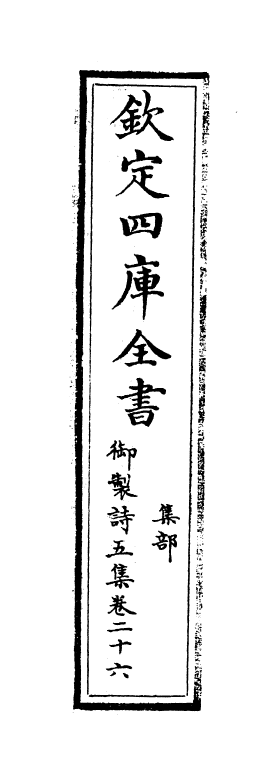 欽定四庫全書
集部
御製詩五集卷二十六